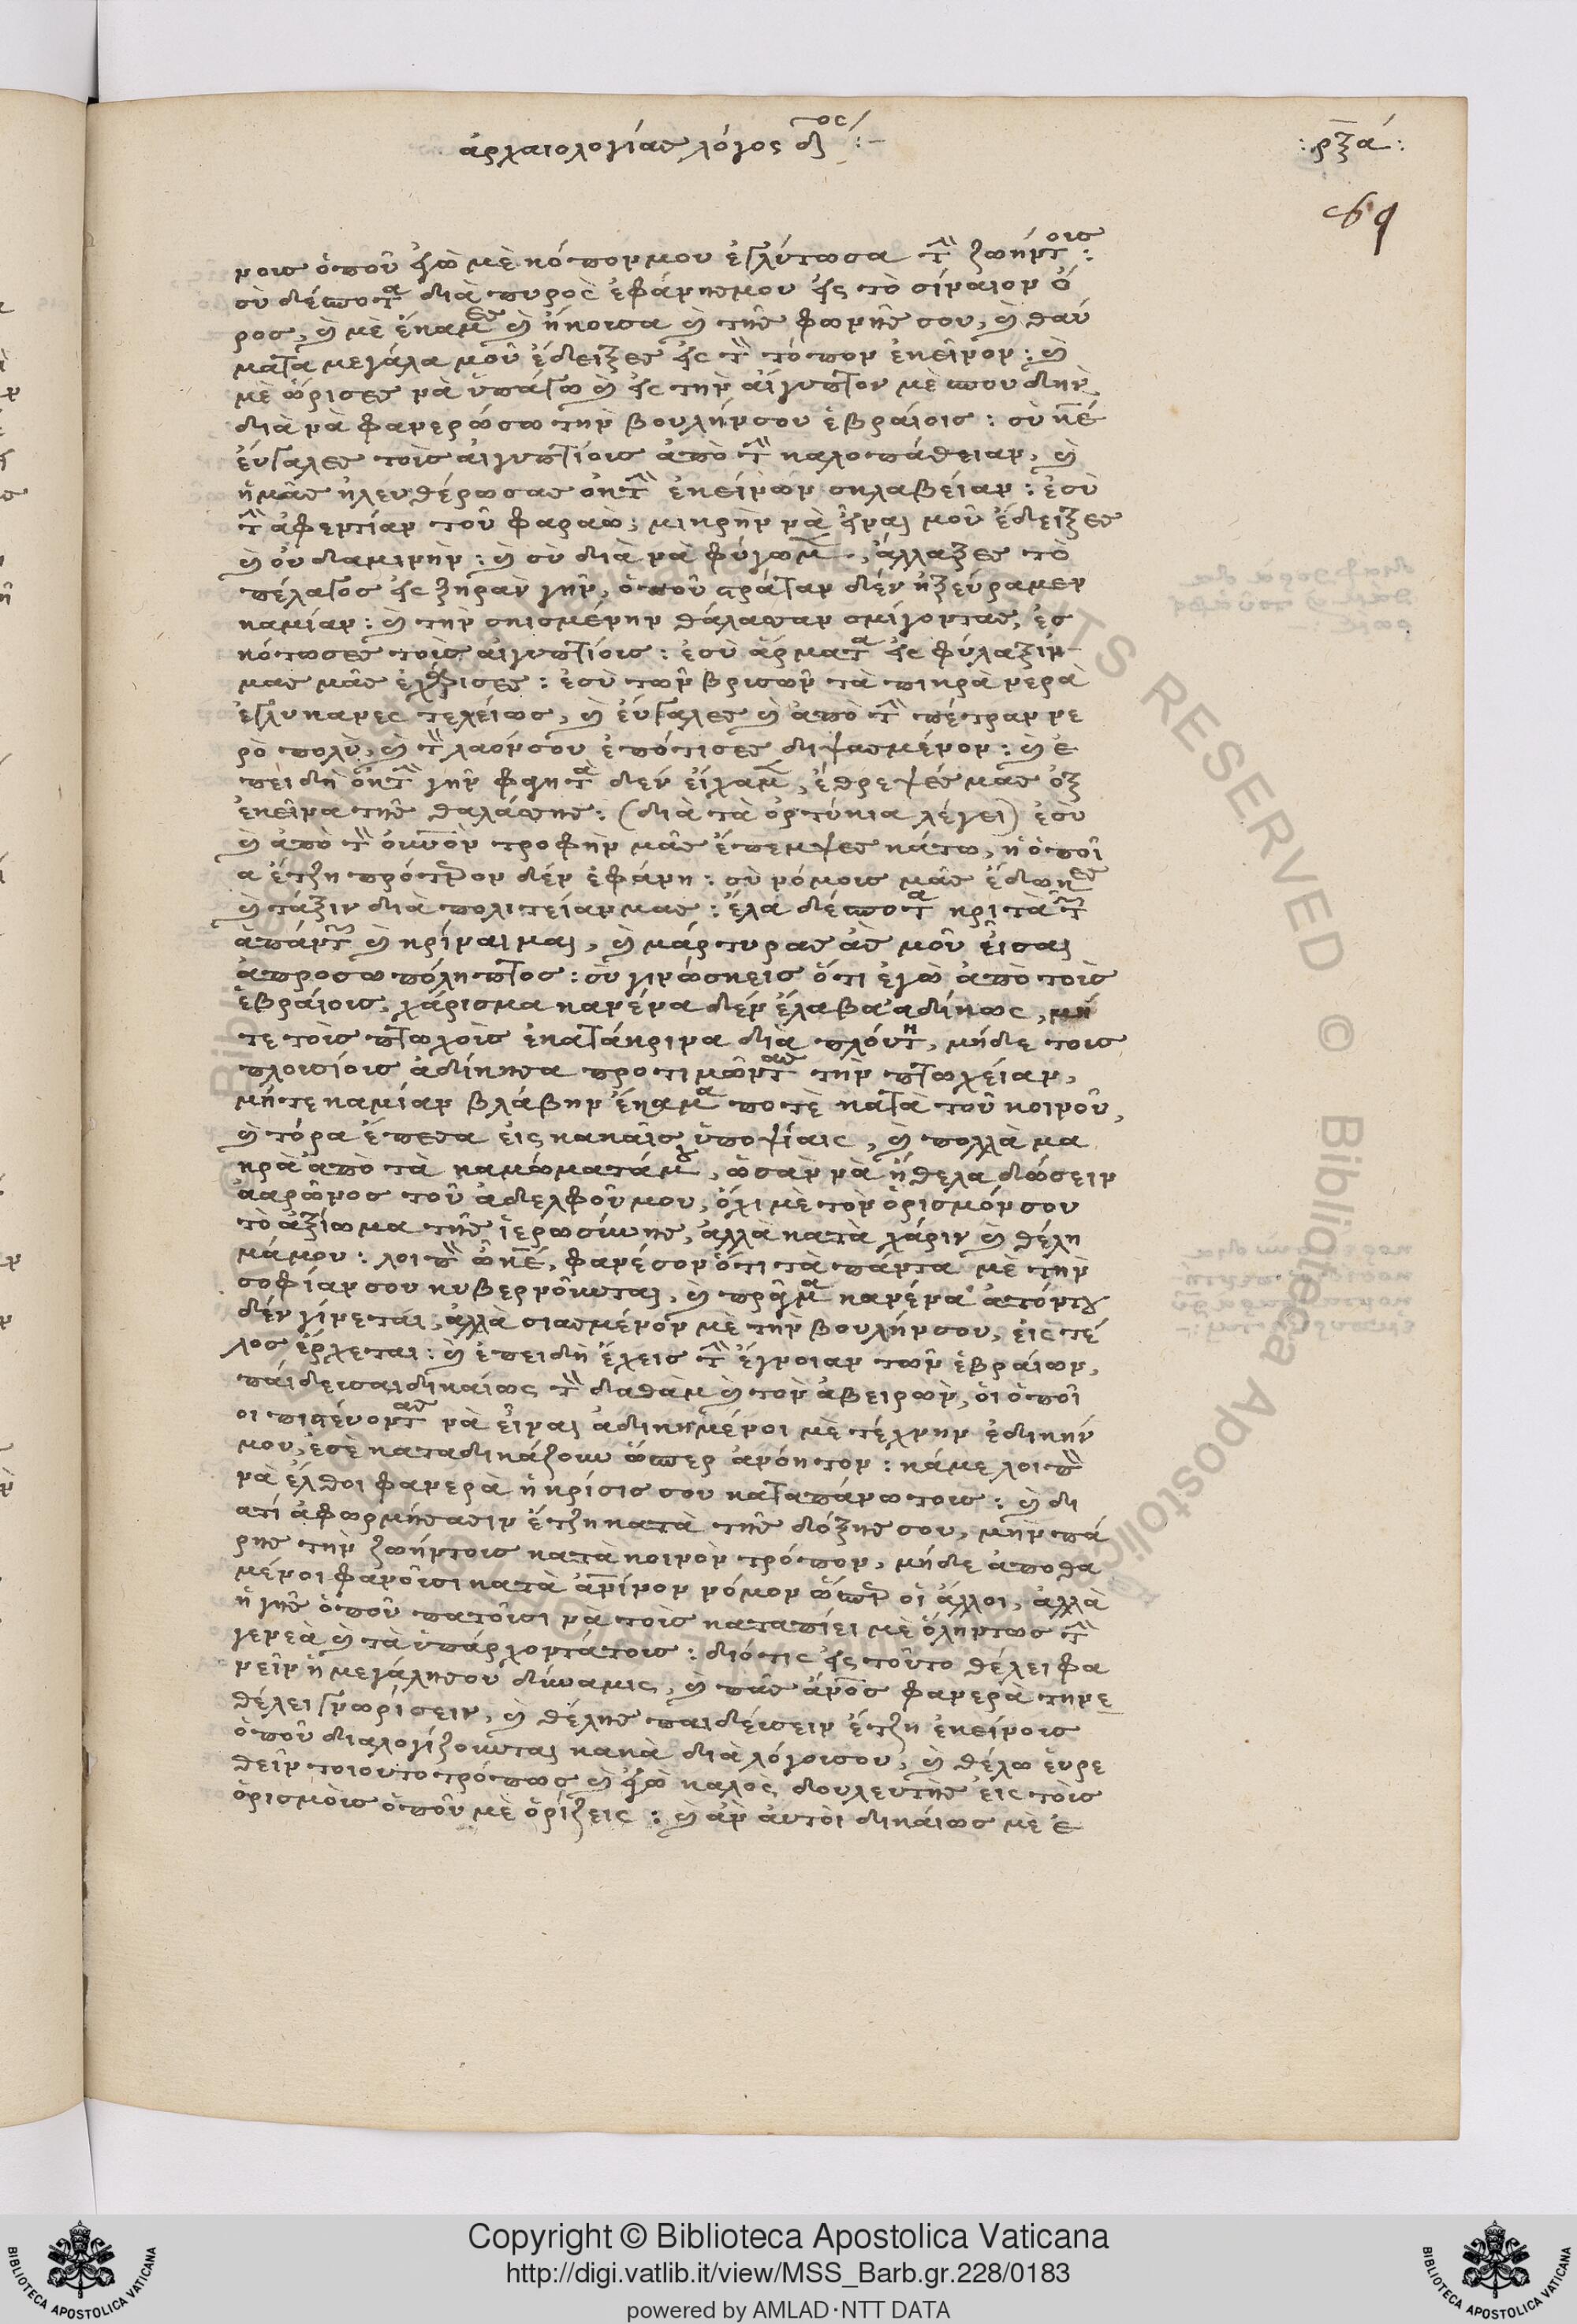 ἀρχαιολογίας λόγος δ^ος :-
: ρξά :
69
νους ὁποῦ ἐγὼ μὲ κόπον μου ἐγλύτωσα τ ζωήντους :
σὺ δέσποτα διὰ πυρὸς ἐφάνησμου εἰς τὸ σίναιον ὄ
ρος, καὶ μὲ ἔκαμες καὶ ἤκουσα καὶ τῆς φωνῆς σου, καὶ θαύ
ματα μεγάλα μοῦ ἔδειξες εἰς τ τόπον ἐκεῖνον : καὶ
μὲ ὥρισες νὰ ὑπάγω καὶ εἰς τὴν αἴγυπτον μὲ σπουδὴν
διὰ νὰ φανερώσω τὴν βουλήνσου ἑβραίοις : σὺ κέ
ἔυγαλες τοὺς αἰγυπτίους ἀπὸ τ καλοπάθειαν, καὶ
ἡμᾶς ἠλευθέρωσας ἐκ τ ἐκείνων σκλαβείαν : ἐσὺ
τ ἀφεντίαν τοῦ φαραὼ, μικρὴν νὰ εἶναι μοῦ ἔδειξες
καὶ οὐδαμινὴν : καὶ σὺ διὰ νὰ φύγωμ, ἄλλαξες τὸ
πέλαγος εἰς ξηρὰν γῆν, ὁποῦ στράταν δὲν ἠξεύραμεν
καμίαν : καὶ τὴν σκισμένην θάλασσαν σμίγοντας, ἐσ
κότωσες τοὺς αἰγυπτίους : ἐσὺ ἄρματα εἰς φύλαξίν
μας μᾶς ἐχάρισες : ἐσὺ τῶν βρισῶν τὰ πικρὰ νερὰ
ἐγλύκανες τελείως, καὶ ἔυγαλες καὶ ἀπὸ τ πέτραν νε
ρὸ πολὺ, καὶ τ λαόνσου ἐπότισες διψασμένον : καὶ ἐ
πειδὴ ἐκ τ γῆν φαητὰ δὲν εἴχαμ, ἔθρεψές μας ἐξ
ἐκεῖνα τῆς θαλάσσης : (διὰ τὰ ὀρτύκια λέγει) ἐσὺ
καὶ ἀπὸ τ ουνὸν τροφὴν μᾶς ἔπεμψες κάτω, ἡ ὁποῖ
α ἔτζη πρότερον δὲν ἐφάνη : σὺ νόμους μᾶς ἔδωκες
καὶ τάξιν διὰ πολιτείανμας : ἔλα δέσποτα κριτὰ τ
ἁπάντ καὶ κρίναιμαι, καὶ μάρτυρας ἂς μοῦ εἶσαι
ἀπροσωπόληπτος : σὺ γινώσκεις ὅτι ἐγὼ ἀπὸ τοὺς
ἑβραίους, χάρισμα κανένα δὲν ἔλαβα ἀδίκως, μή
τε τοὺς πτωχοὺς ἐκατάκρινα διὰ πλούτη, μήδε τους
πλουσίους ἀδίκησα προτιμῶντας τὴν πτωχείαν,
μήτε καμίαν βλάβην ἔκαμα ποτὲ κατὰ τοῦ κοινοῦ,
καὶ τόρα ἔπεσα εἰς κακαῖς ὑποψίαις, καὶ πολλὰ μα
κρὰ ἀπὸ τὰ καμώματάμου, ὡσὰν νὰ ἤθελα δώσειν
ἀαρῶνος τοῦ ἀδελφοῦ μου, ὄχι μὲ τὸν ὁρισμόνσου
τὸ ἀξίωμα τῆς ἱερωσύνης, ἀλλὰ κατὰ χάριν καὶ θέλη
μάμου : λοιπ ὦ κέ, φανέσον ὅτι τὰ πάντα μὲ τὴν
σοφίαν σου κυβερνοῦνται, καὶ πρᾶγμα κανένα ἀτόντου
δὲν γίνεται, ἀλλὰ σιασμένον μὲ τὴν βουλήνσου, εἰς τέ
λος ἔρχεται : καὶ ἐπειδὴ ἔχεις τ ἔγνοιαν τῶν ἑβραίων,
παίδευσαι δικαίως τ δαθὰμ καὶ τὸν ἀβειρὼν, οἱ ὁποῖ
οι πιστέυοντας νὰ εἶναι ἀδικημένοι μὲ τέχνην ἐδικήν
μου, ἐσὲ καταδικάζουν ὥσπερ ἀνόητον : κάμε λοιπ
νὰ ἔλθοι φανερὰ ἡ κρίσις σου καταπάνω τους : καὶ δι
ατί ἀφωρμήσασιν ἔτζη κατὰ τῆς δόξης σου, μὴν πά
ρης τὴν ζωήντους κατὰ κοινὸν τρόπον, μήδε ἀποθα
μένοι φανοῦσι κατὰ ἀνίνον νόμον ὥσπερ οἱ ἄλλοι, ἀλλὰ
ἡ γῆς ὁποῦ πατοῦσι νὰ τοὺς καταπίει μὲ ὅληντως τ
γενεὰ καὶ τὰ ὑπάρχοντάτους : διότις εἰς τοῦτο θέλει φα
νεῖν ἡ μεγάλησου δύναμις, καὶ πᾶς ἄνος φανερὰ τηνε
θέλει γνωρίσειν, καὶ θέλης παιδεύσειν ἔτζη ἐκείνους
ὁποῦ διαλογίζουνται κακὰ διὰ λόγουσου, καὶ θέλω εὑρε
θεῖν τοιουτοτρόπως καὶ ἐγὼ καλὸς δουλευτὴς εἰς τοὺς
ὁρισμοὺς ὁποῦ μὲ ὁρίζεις : καὶ ἂν ἀυτοὶ δικάιως μὲ ἐ
Copyright © Biblioteca Apostolica Vaticana
http://digi.vatlib.it/view/MSS_Barb.gr.228/0183
powered by AMLAD·NTT DATA